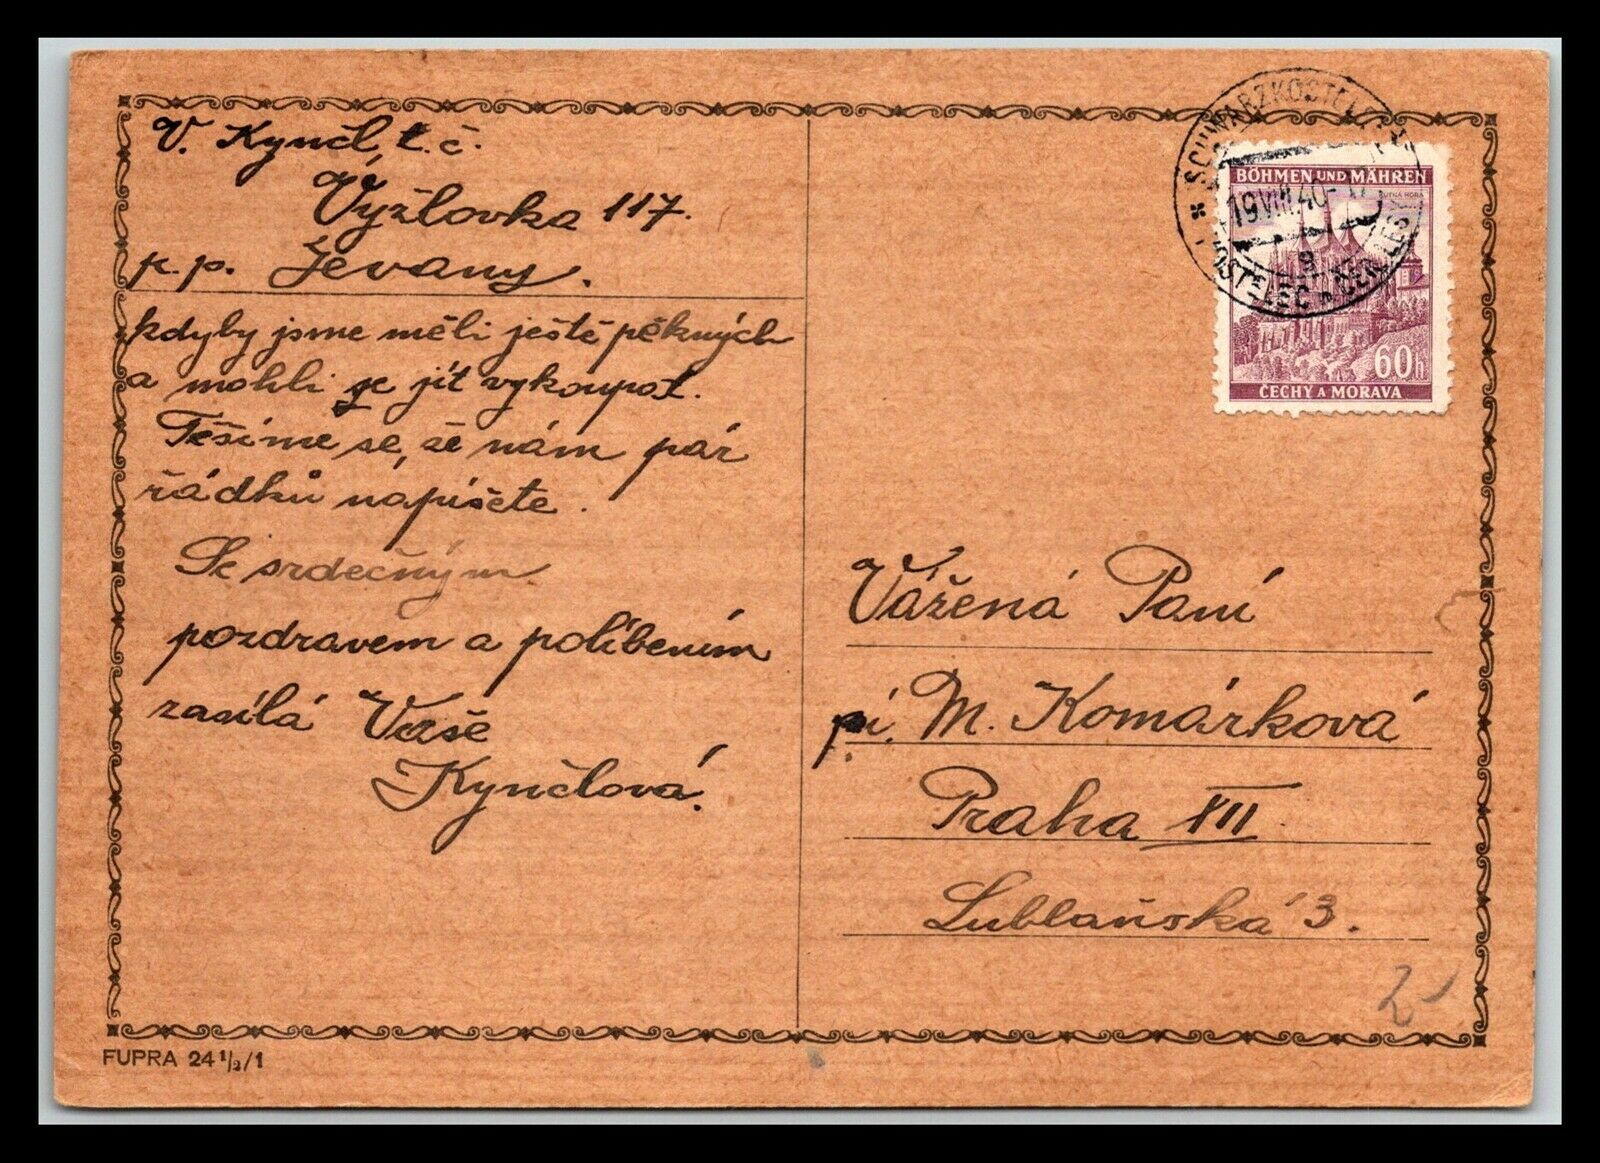 V. Kynčl, t. č.
Vyžlovka 117.
p. p. Jevany.
kdyby jsme měli ještě pěkných
a mohli se jít vykoupat.
Těšíme se, že nám pár
řádků napíšete.
Se srdečným
pozdravem a políbením
zasílá Vaše
Kynčlová.
FUPRA 24 1/2/1
SCHWARZKOSTELETZ
19.VIII.40
KOSTELEC n. ČER. LESY
BÖHMEN UND MÄHREN
KUTNÁ HORA
60h
ČECHY A MORAVA
Vážená Paní
pí. M. Komárková
Praha XII
Lublaňská 3.
2